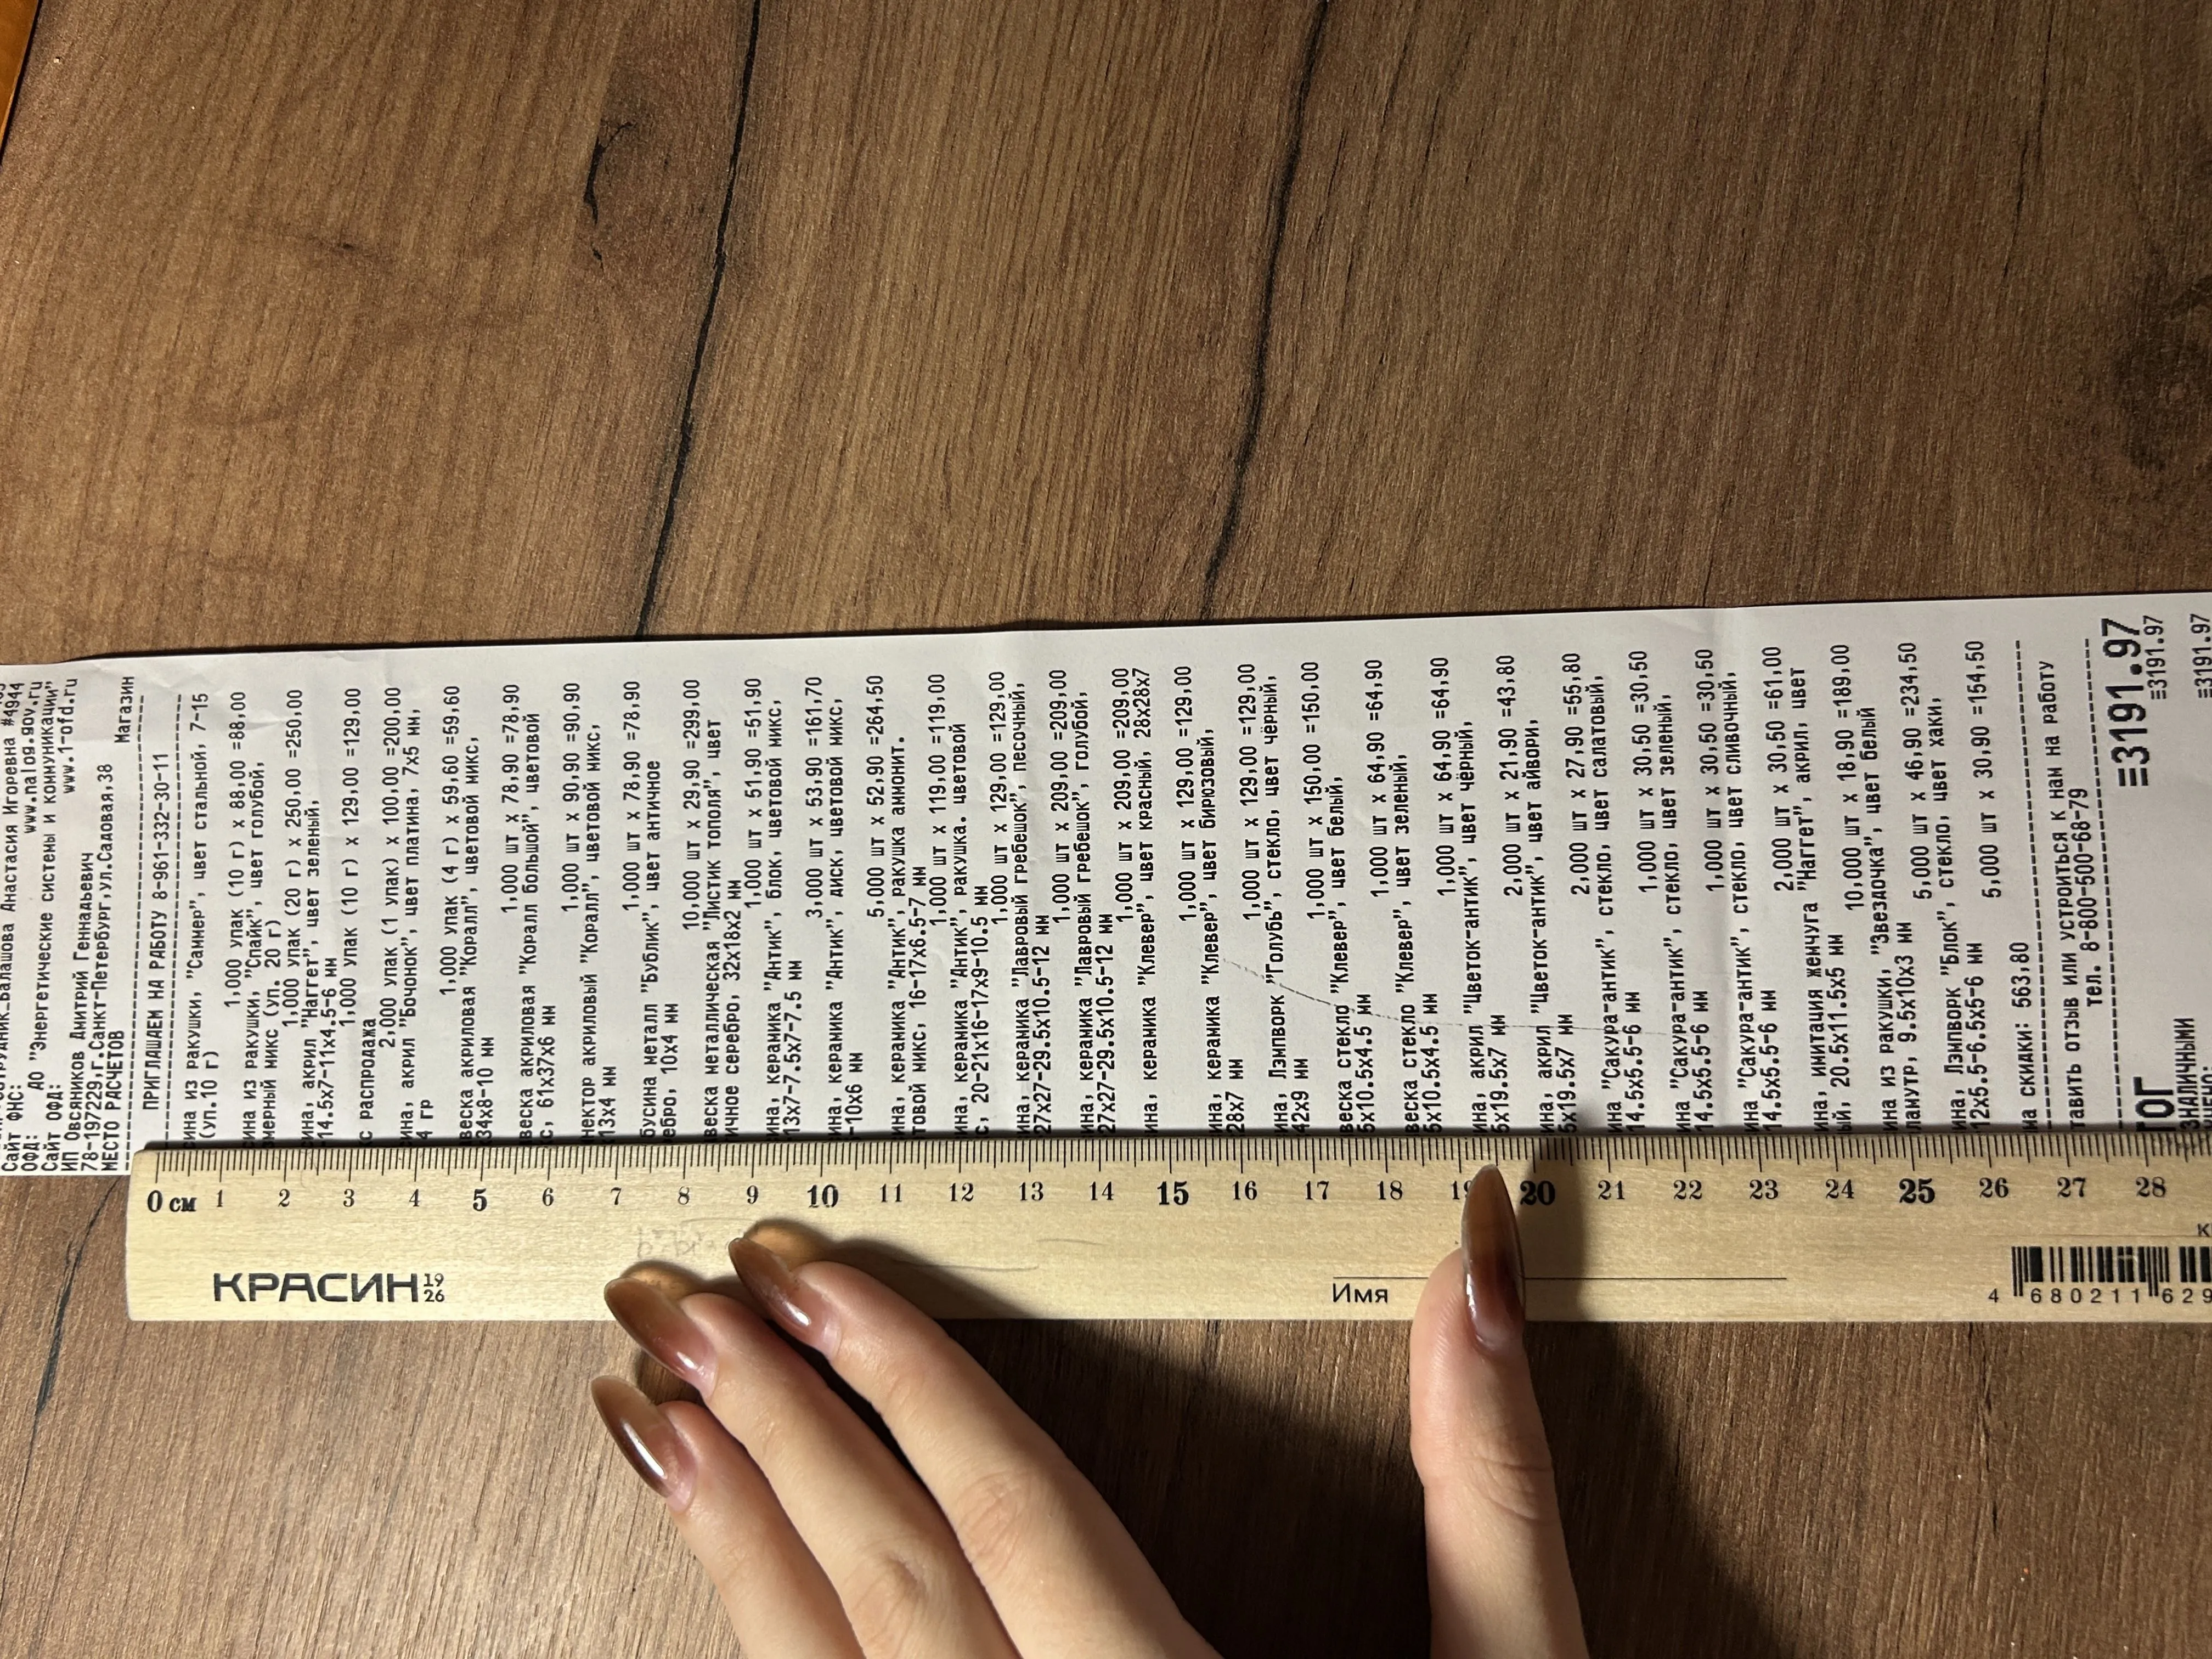 Сайт ФНС: www.nalog.gov.ru
ОФД: АО "Энергетические системы и коммуникации"
Сайт ОФД: www.1-ofd.ru
ИП Овсяников Дмитрий Геннадьевич
78-197229.г.Санкт-Петербург,ул.Садовая,38
МЕСТО РАСЧЕТОВ Магазин
ПРИГЛАШАЕМ НА РАБОТУ 8-961-332-30-11
из ракушки, "Саммер", цвет стальной, 7-15
(уп.10 г)
1,000 упак (10 г) x 88,00 =88,00
из ракушки, "Спайк", цвет голубой,
мерный микс (уп. 20 г)
1,000 упак (20 г) x 250,00 =250,00
ина, акрил "Наггет", цвет зеленый,
14.5x7-11x4.5-6 мм
1,000 упак (10 г) x 129,00 =129,00
с распродажа
2,000 упак (1 упак) x 100,00 =200,00
ина, акрил "Бочонок", цвет платина, 7x5 мм,
4 гр
1,000 упак (4 г) x 59,60 =59,60
веска акриловая "Коралл", цветовой микс,
34x8-10 мм
1,000 шт x 78,90 =78,90
веска акриловая "Коралл большой", цветовой
с, 61x37x6 мм
1,000 шт x 90,90 =90,90
нектор акриловый "Коралл", цветовой микс,
13x4 мм
1,000 шт x 78,90 =78,90
бусина металл "Бублик", цвет античное
ебро, 10x4 мм
10,000 шт x 29,90 =299,00
веска металлическая "Листик тополя", цвет
ичное серебро, 32x18x2 мм
1,000 шт x 51,90 =51,90
ина, керамика "Антик", блок, цветовой микс,
13x7-7.5x7-7.5 мм
3,000 шт x 53,90 =161,70
ина, керамика "Антик", диск, цветовой микс,
-10x6 мм
5,000 шт x 52,90 =264,50
ина, керамика "Антик", ракушка аммонит.
товой микс, 16-17x6.5-7 мм
1,000 шт x 119,00 =119,00
ина, керамика "Антик", ракушка. цветовой
с, 20-21x16-17x9-10.5 мм
1,000 шт x 129,00 =129,00
ина, керамика "Лавровый гребешок", песочный,
27x27-29.5x10.5-12 мм
1,000 шт x 209,00 =209,00
ина, керамика "Лавровый гребешок", голубой,
27x27-29.5x10.5-12 мм
1,000 шт x 209,00 =209,00
ина, керамика "Клевер", цвет красный, 28x28x7
1,000 шт x 129,00 =129,00
ина, керамика "Клевер", цвет бирюзовый,
28x7 мм
1,000 шт x 129,00 =129,00
ина, Лэмпворк "Голубь", стекло, цвет чёрный,
42x9 мм
1,000 шт x 150,00 =150,00
веска стекло "Клевер", цвет белый,
5x10.5x4.5 мм
1,000 шт x 64,90 =64,90
веска стекло "Клевер", цвет зеленый,
5x10.5x4.5 мм
1,000 шт x 64,90 =64,90
ина, акрил "Цветок-антик", цвет чёрный,
5x19.5x7 мм
2,000 шт x 21,90 =43,80
ина, акрил "Цветок-антик", цвет айвори,
5x19.5x7 мм
2,000 шт x 27,90 =55,80
ина "Сакура-антик", стекло, цвет салатовый,
14.5x5.5-6 мм
1,000 шт x 30,50 =30,50
ина "Сакура-антик", стекло, цвет зеленый,
14.5x5.5-6 мм
1,000 шт x 30,50 =30,50
ина "Сакура-антик", стекло, цвет сливочный,
14.5x5.5-6 мм
2,000 шт x 30,50 =61,00
ина, имитация жемчуга "Наггет", акрил, цвет
ый, 20.5x11.5x5 мм
10,000 шт x 18,90 =189,00
ина из ракушки, "Звездочка", цвет белый
ламутр, 9.5x10x3 мм
5,000 шт x 46,90 =234,50
ина, Лэмпворк "Блок", стекло, цвет хаки,
12x5.5-6.5x5-6 мм
5,000 шт x 30,90 =154,50
на скидки: 563,80
тавить отзыв или устроиться к нам на работу
тел. 8-800-500-68-79
ТОГ ≡3191.97
ЗНАЛИЧНЫМИ ≡3191.97
≡3191.97
0 см 1 2 3 4 5 6 7 8 9 10 11 12 13 14 15 16 17 18 19 20 21 22 23 24 25 26 27 28
КРАСИН 19 26
Имя
4 680211 629